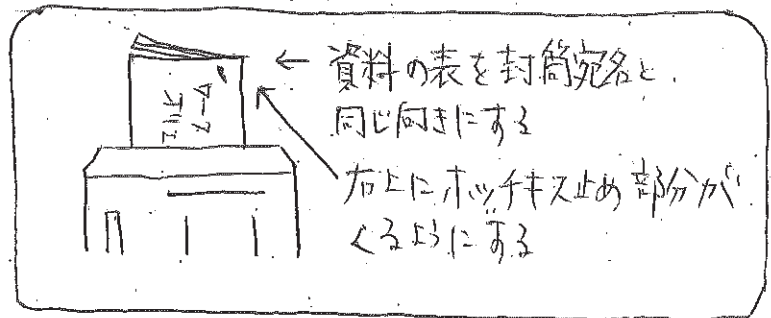 資料の表を封筒宛名と、
同じ向きにする
右上にホッチキス止め部分が
くるようにする